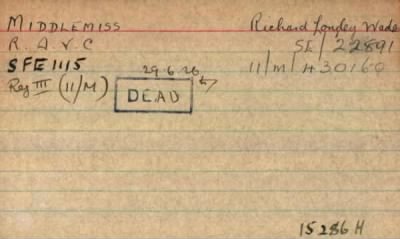 MIDDLEMISS Richard Longley Wade
R. A. V. C SE/22891
SFE 1115 29.6.26 11/M/430160
Reg III (11/M) DEAD
15286 H